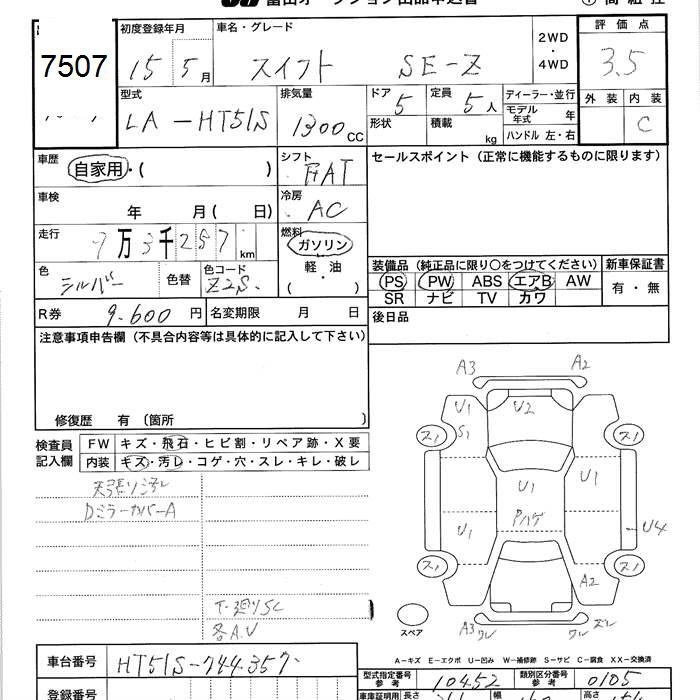 7507
初度登録年月 車名・グレード 評価点
15 5月 スイフト SE-Z 2WD・4WD 3.5
型式 排気量 ドア 5 定員 5人 ディーラー・並行 外装 内装
LA-HT51S 1300cc 形状 積載 kg モデル年式 年 C
ハンドル 左・右
車歴 自家用・( ) シフト FAT セールスポイント (正常に機能するものに限ります)
車検 年 月( 日) 冷房 AC
走行 9万3千257km 燃料 ガソリン
軽・油
( ・ )
色 シルバー 色替 色コード Z2S 装備品 (純正品に限り○をつけてください) 新車保証書
PS PW ABS エアB AW 有・無
SR ナビ TV カワ
R券 9,600円 名変期限 月 日 後日品
注意事項申告欄 (不具合内容等は具体的に記入して下さい)
修復歴 有 〔箇所 〕
検査員記入欄 FW キズ・飛石・ヒビ割・リペア跡・X要
内装 キズ・汚レ・コゲ・穴・スレ・キレ・破レ
天張り汚れ
DミラーカバーA
下廻りSC
各A.U
A3 A2
U1 U2
S1
ス1 ス1
U1 U1
U1 Pハゲ U4
ス1 ス1
A2
スペア A3 ワレ ワレ ズレ
A-キズ E-エクボ U-凹み W-補修跡 S-サビ C-腐食 XX-交換済
車台番号 HT51S-744357 型式指定番号 参考 10452 類別区分番号 参考 0105
登録番号 車庫証明用 長さ 幅 高さ